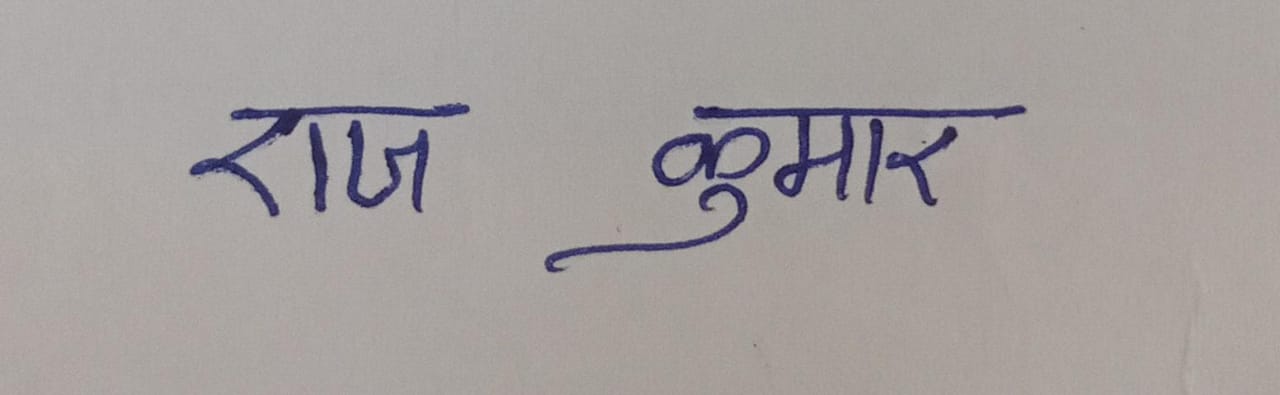 राज कुमार